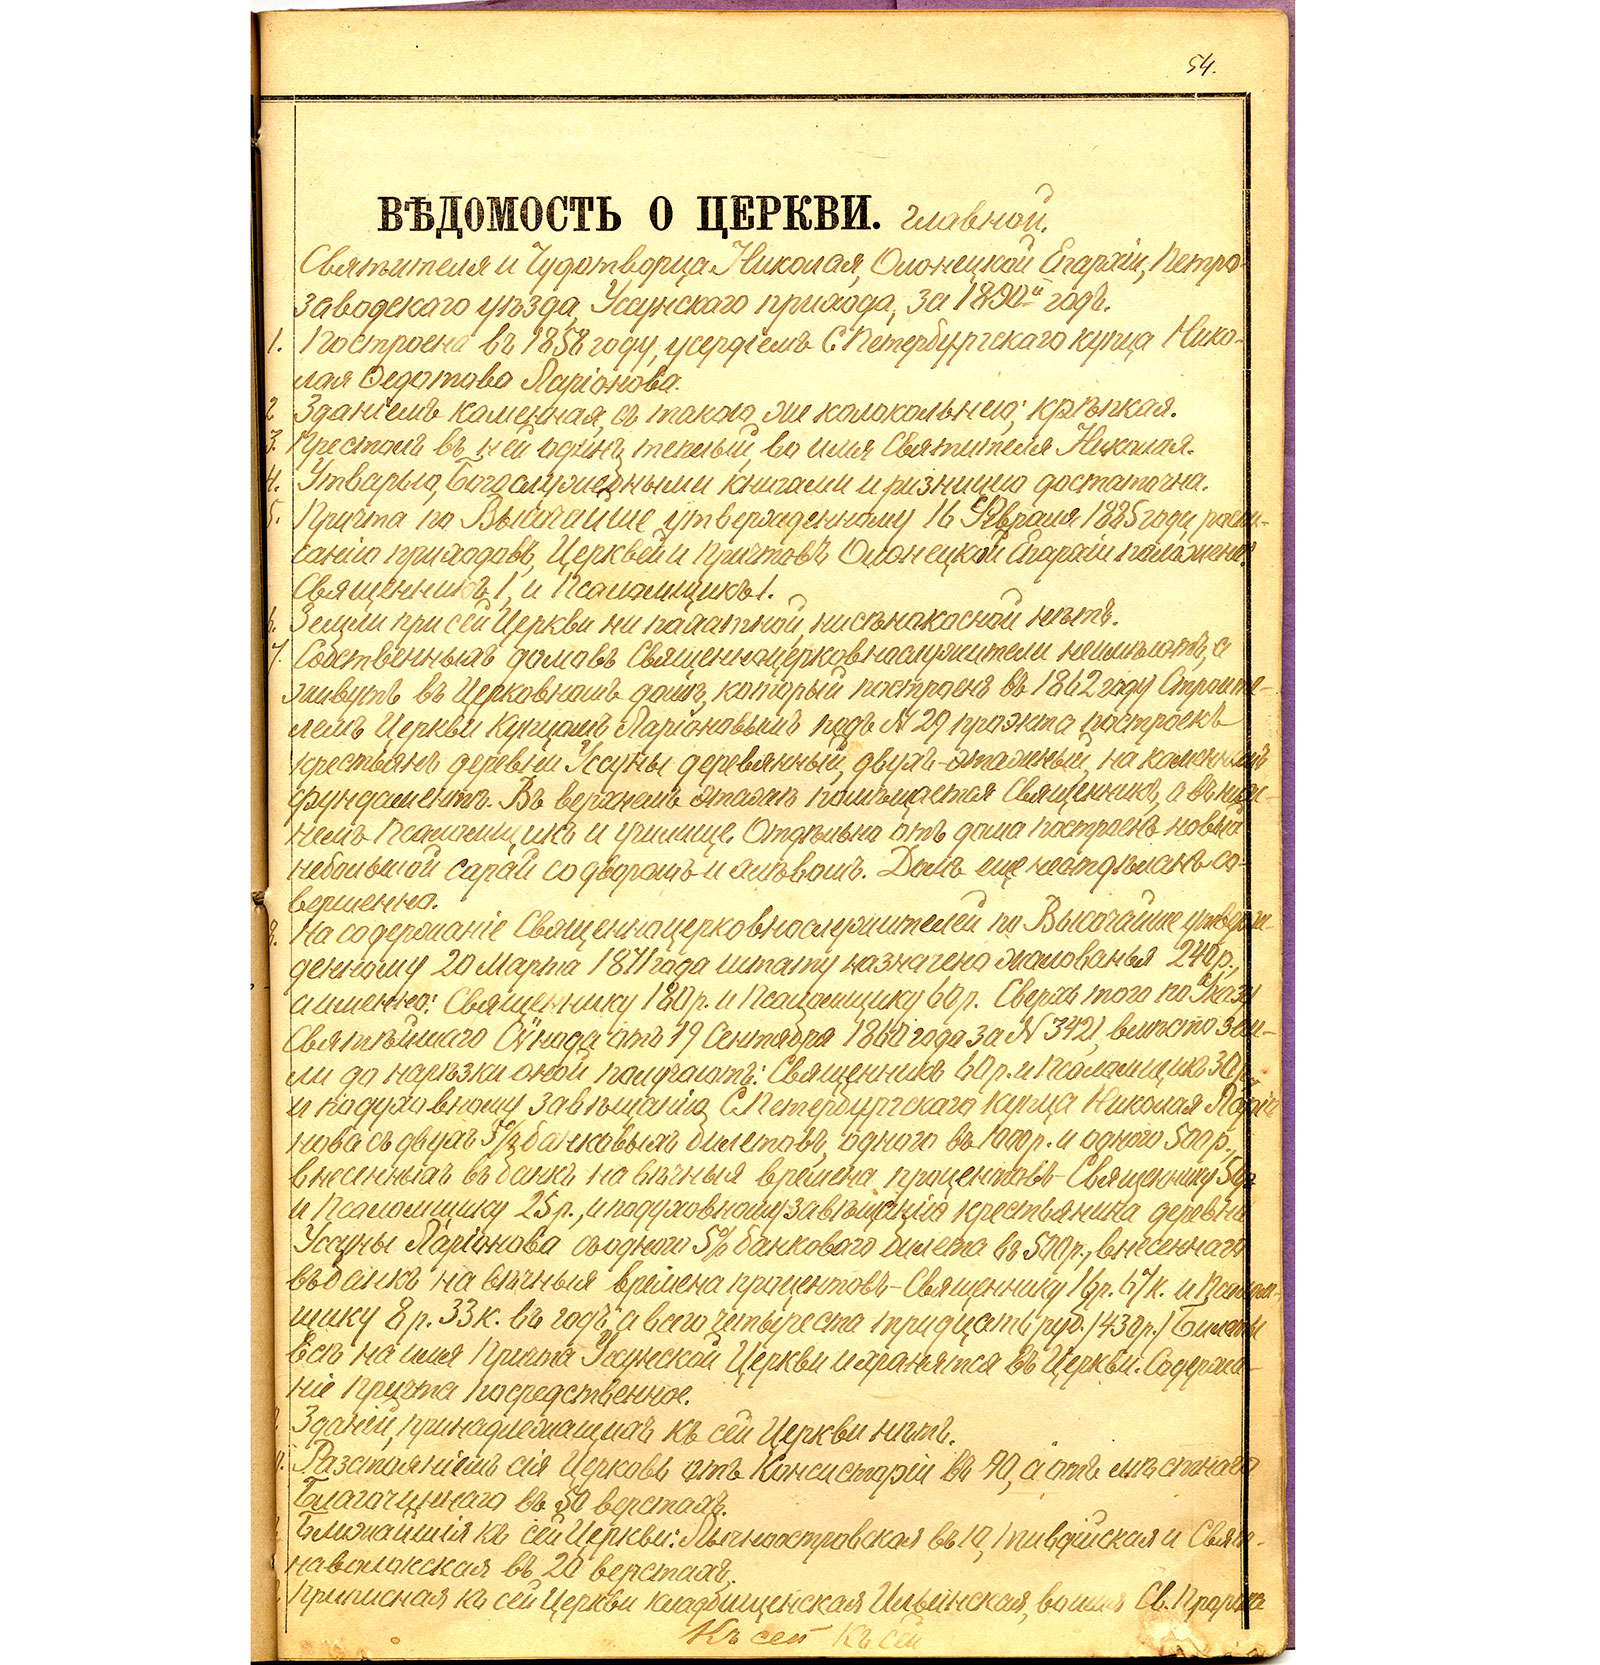 54.
ВѢДОМОСТЬ О ЦЕРКВИ. главной.
Святителя и Чудотворца Николая, Олонецкой Епархіи, Петро-
заводскаго уѣзда, Усунскаго прихода, за 1890й годъ.
1. Построена въ 1858 году, усердіемъ С.Петербургскаго купца Нико-
лая Федотова Ларіонова.
2 Зданіемъ каменная, съ такою же колокольнею; крѣпкая.
3. Престолъ въ ней одинъ теплый, во имя Святителя Николая.
4. Утварью, Богослужебными книгами и ризницею достаточна.
5. Причта по Высочайше утвержденному 16 Февраля 1885 года, роспи-
санію приходовъ, Церквей и Причтовъ Олонецкой Епархіи положено:
Священникъ 1, и Псаломщикъ 1.
6. Земли при сей Церкви ни пахатной, ни сѣнокосной нѣтъ.
7. Собственныхъ домовъ Священноцерковнослужители неимѣютъ, а
живутъ въ Церковномъ домѣ, который построенъ въ 1862 году Строите-
лемъ Церкви Купцомъ Ларіоновымъ подъ N 29 проэкта построекъ
крестьянъ деревни Усуны деревянный, двухъ-этажный, на каменномъ
фундаментѣ. Въ верхнемъ этажѣ помѣщается Священникъ, а въ ниж-
немъ Псаломщикъ и училище. Отдѣльно отъ дома построенъ новый
небольшой сарай со дворомъ и хлѣвомъ. Домъ еще неотдѣланъ со-
вершенно.
8. На содержаніе Священноцерковнослужителей по Высочайше утверж-
денному 20 Марта 1871 года штату назначено жалованья 240 р.,
а именно: Священнику 180 р. и Псаломщику 60 р. Сверхъ того по Указу
Святѣйшаго Сѵнода отъ 19 Сентября 1860 года за N 3421, вмѣсто зем-
ли до нарѣзки оной получаютъ: Священникъ 60 р. и Псаломщикъ 30 р.
и по духовному завѣщанію С.Петербургскаго купца Николая Ларіо
нова съ двухъ 5% банковыхъ билетовъ, одного въ 1000 р. и одного 500 р.,
внесенныхъ въ банкъ на вѣчныя времена процентовъ - Священнику 50 р
и Псаломщику 25 р., и по духовному завѣщанію крестьянина деревни
Усуны Ларіонова съ одного 5% банковаго билета въ 500 р., внесеннаго
въ банкъ на вѣчныя времена процентовъ - Священнику 16 р. 67 к. и Псалом-
щику 8 р. 33 к. въ годъ, а всего четыреста тридцать руб. (430 р.) Билеты
Всѣ на имя Причта Усунской Церкви и хранятся въ Церкви. Содержа-
ніе Причта посредственное.
Зданій, принадлежащихъ къ сей Церкви нѣтъ.
Разстояніемъ сія Церковь отъ Консисторіи въ 90, а отъ мѣстнаго
Благочиннаго въ 50 верстахъ.
Ближайшія къ сей Церкви: Лычноостровская въ 10, Тивдійская и Свят-
наволокская въ 20 верстахъ.
Приписная къ сей Церкви кладбищенская Ильинская, во имя Св. Пророка
Къ сей Къ сей